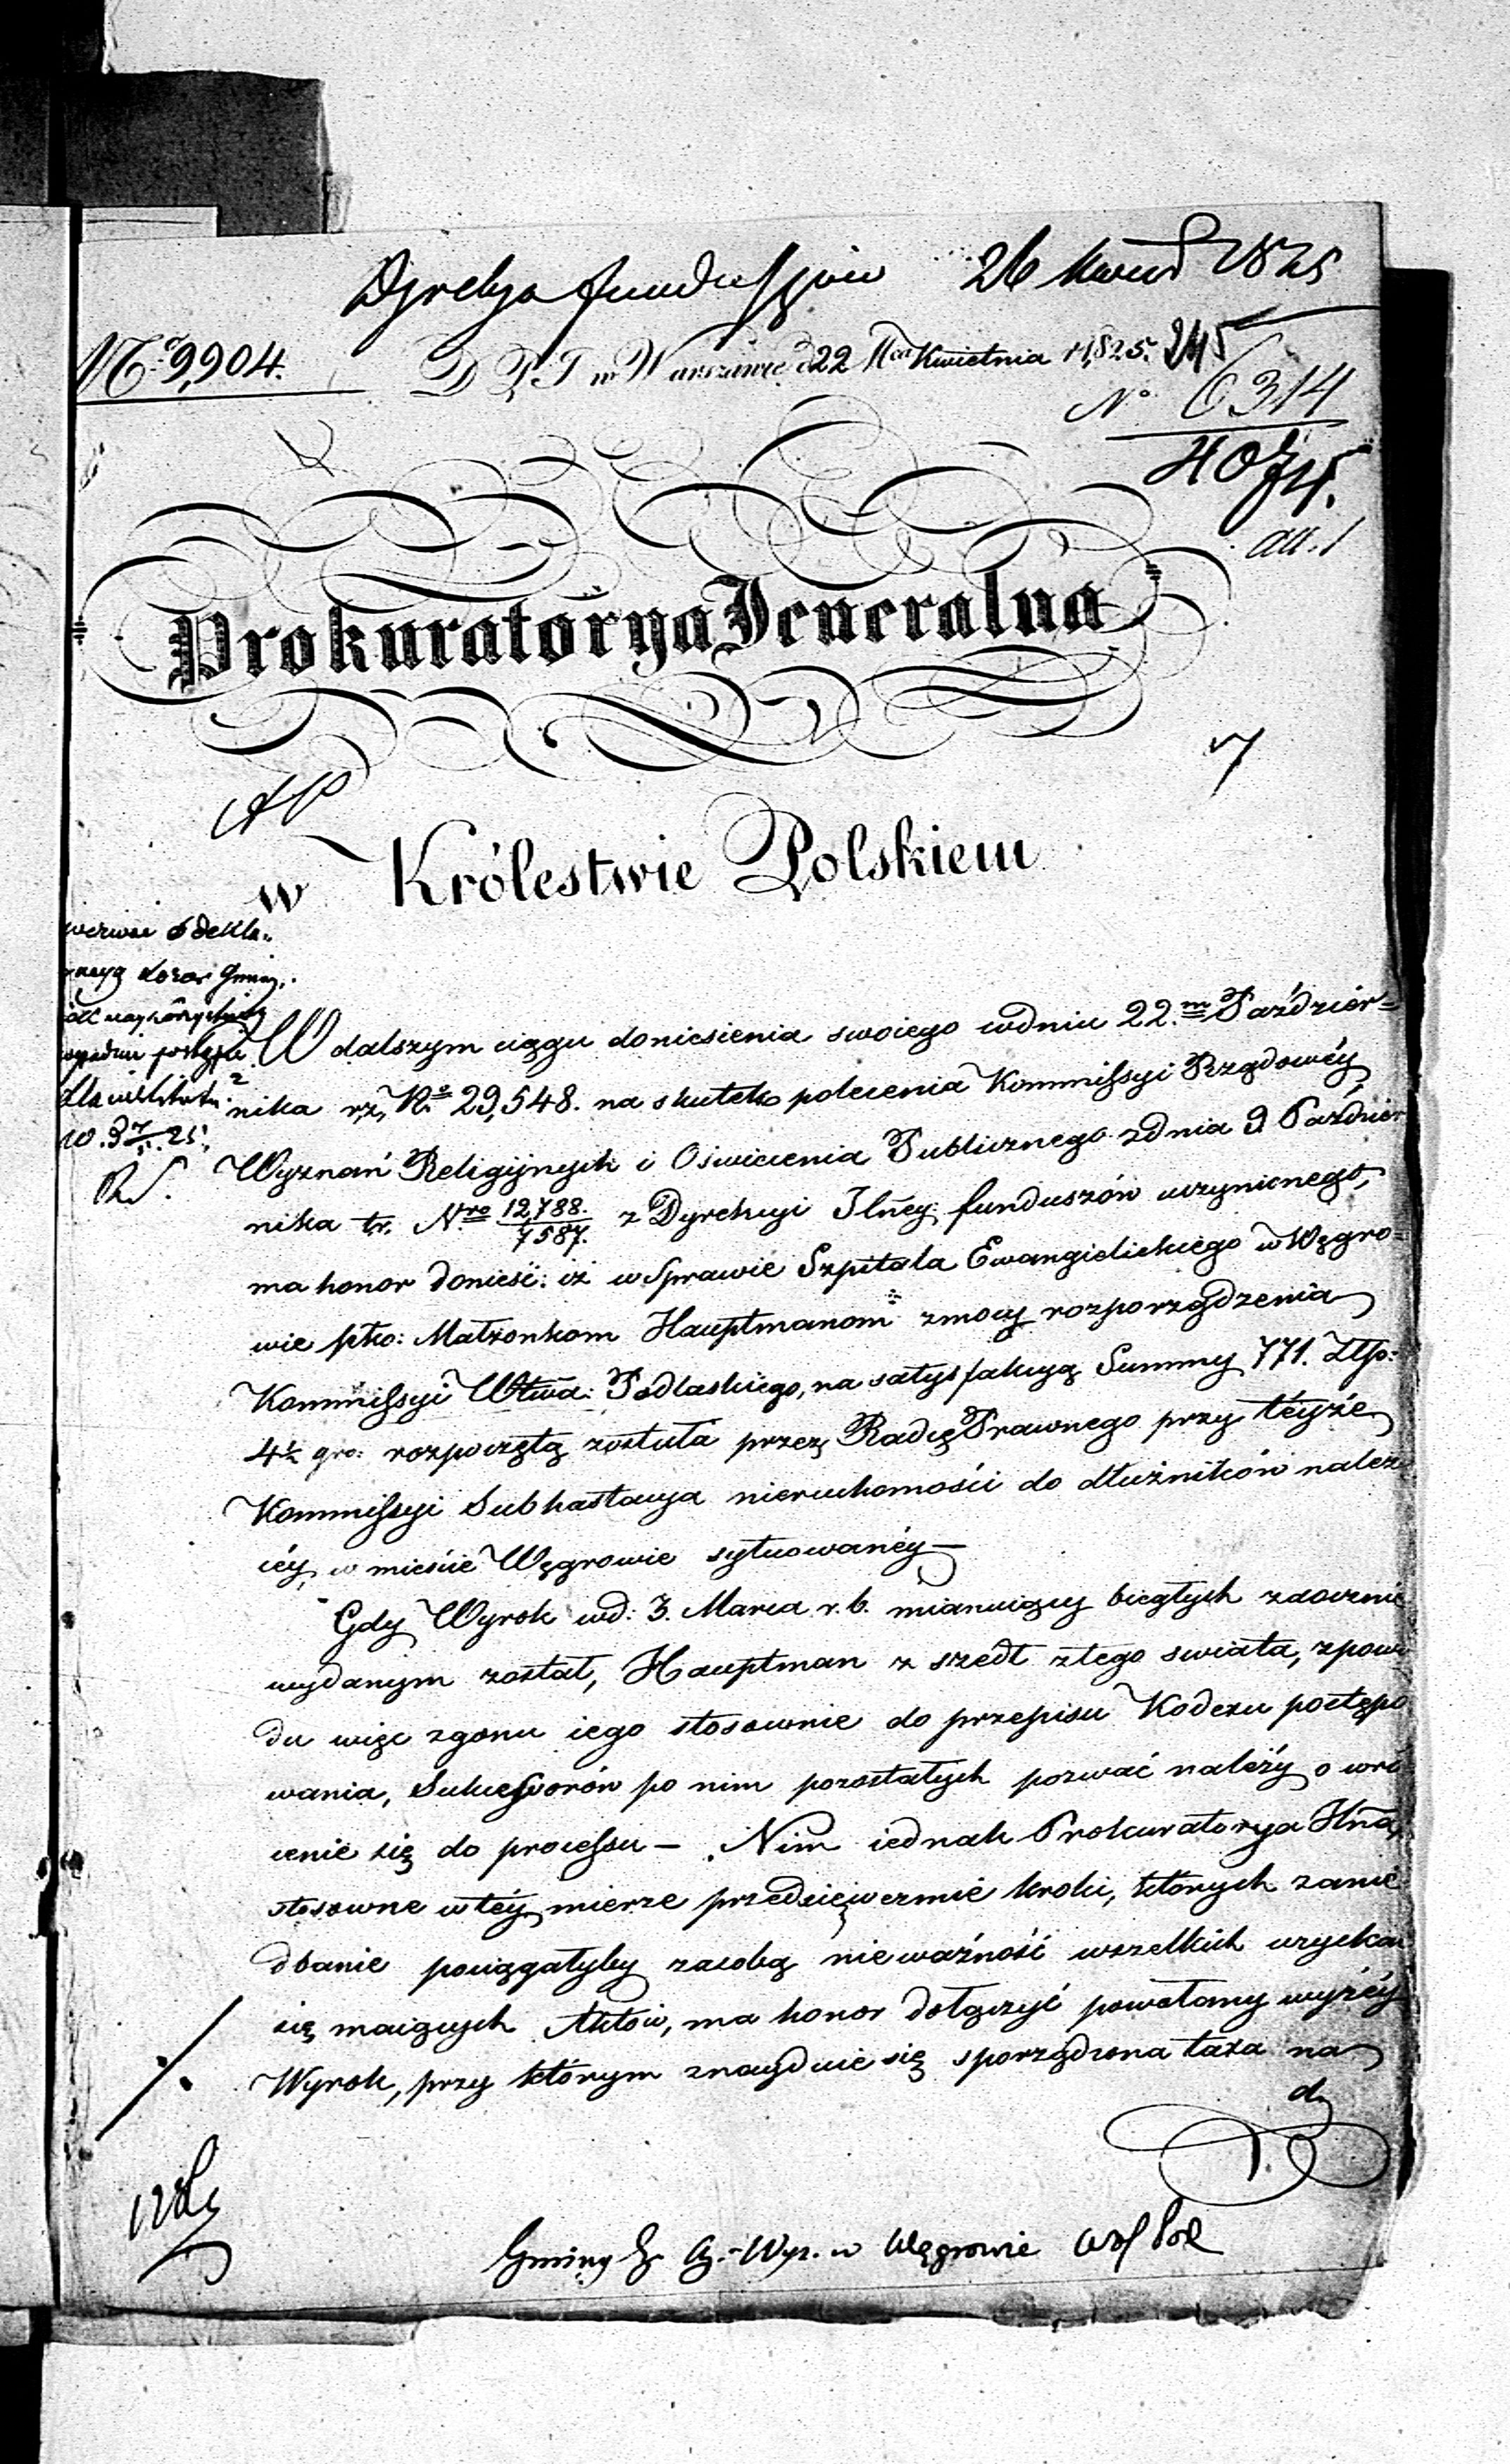 Dyrekcya funduszów 26 kwiet 1825
Nº 9,904. D w Warszawie d 22 Mca Kwietnia 1825. 245
Nº 6314
407
all. 1
Prokuratorya Jeneralna
7
w Królestwie Polskiem
W dalszym ciągu doniesienia swoiego w dniu 22.m Paździer=
nika r. z. Nº 29,548. na skutek polecenia Kommissyi Rządowéy
Wyznań Religijnych i Oświecenia Publicznego z dnia 9. Paździer
nika t. r. Nro 12,788./7587. z Dyrekcyi Jlnéy funduszów uczynionego,
ma honor donieść: iż w Sprawie Szpitala Ewangielickiego w Węgro=
wie pko: Małżonkom Hauptmanom z mocy rozporządzenia
Kommissyi Wtwa: Podlaskiego, na satysfakcyą Summy 771. Złp:
4½ gro: rozpoczętą została przez Radcę Prawnego przy téyże
Kommissyi Subhastacya nieruchomości do dłużników należą
céy, w mieście Węgrowie sytuowanéy —
Gdy Wyrok w d: 3. Marca r. b. mianuiący biegłych zaocznie
wydanym został, Hauptman zszedł z tego swiata, z powo
du więc zgonu iego stosownie do przepisu Kodexu postępo
wania, Sukcessorów po nim pozostałych pozwać należy o wró
cenie się do processu — . Nim iednak Prokuratorya Jlna,
stosowne w téy mierze przedsięwezmie kroki, których zanie
dbanie pociągałyby za sobą nieważność wszelkich uzyskać
się maiących Aktów, ma honor dołączyć powołany wyżéy
Wyrok, przy którym znayduie się sporządzona taxa na
d.
Gminy w Węgrowie